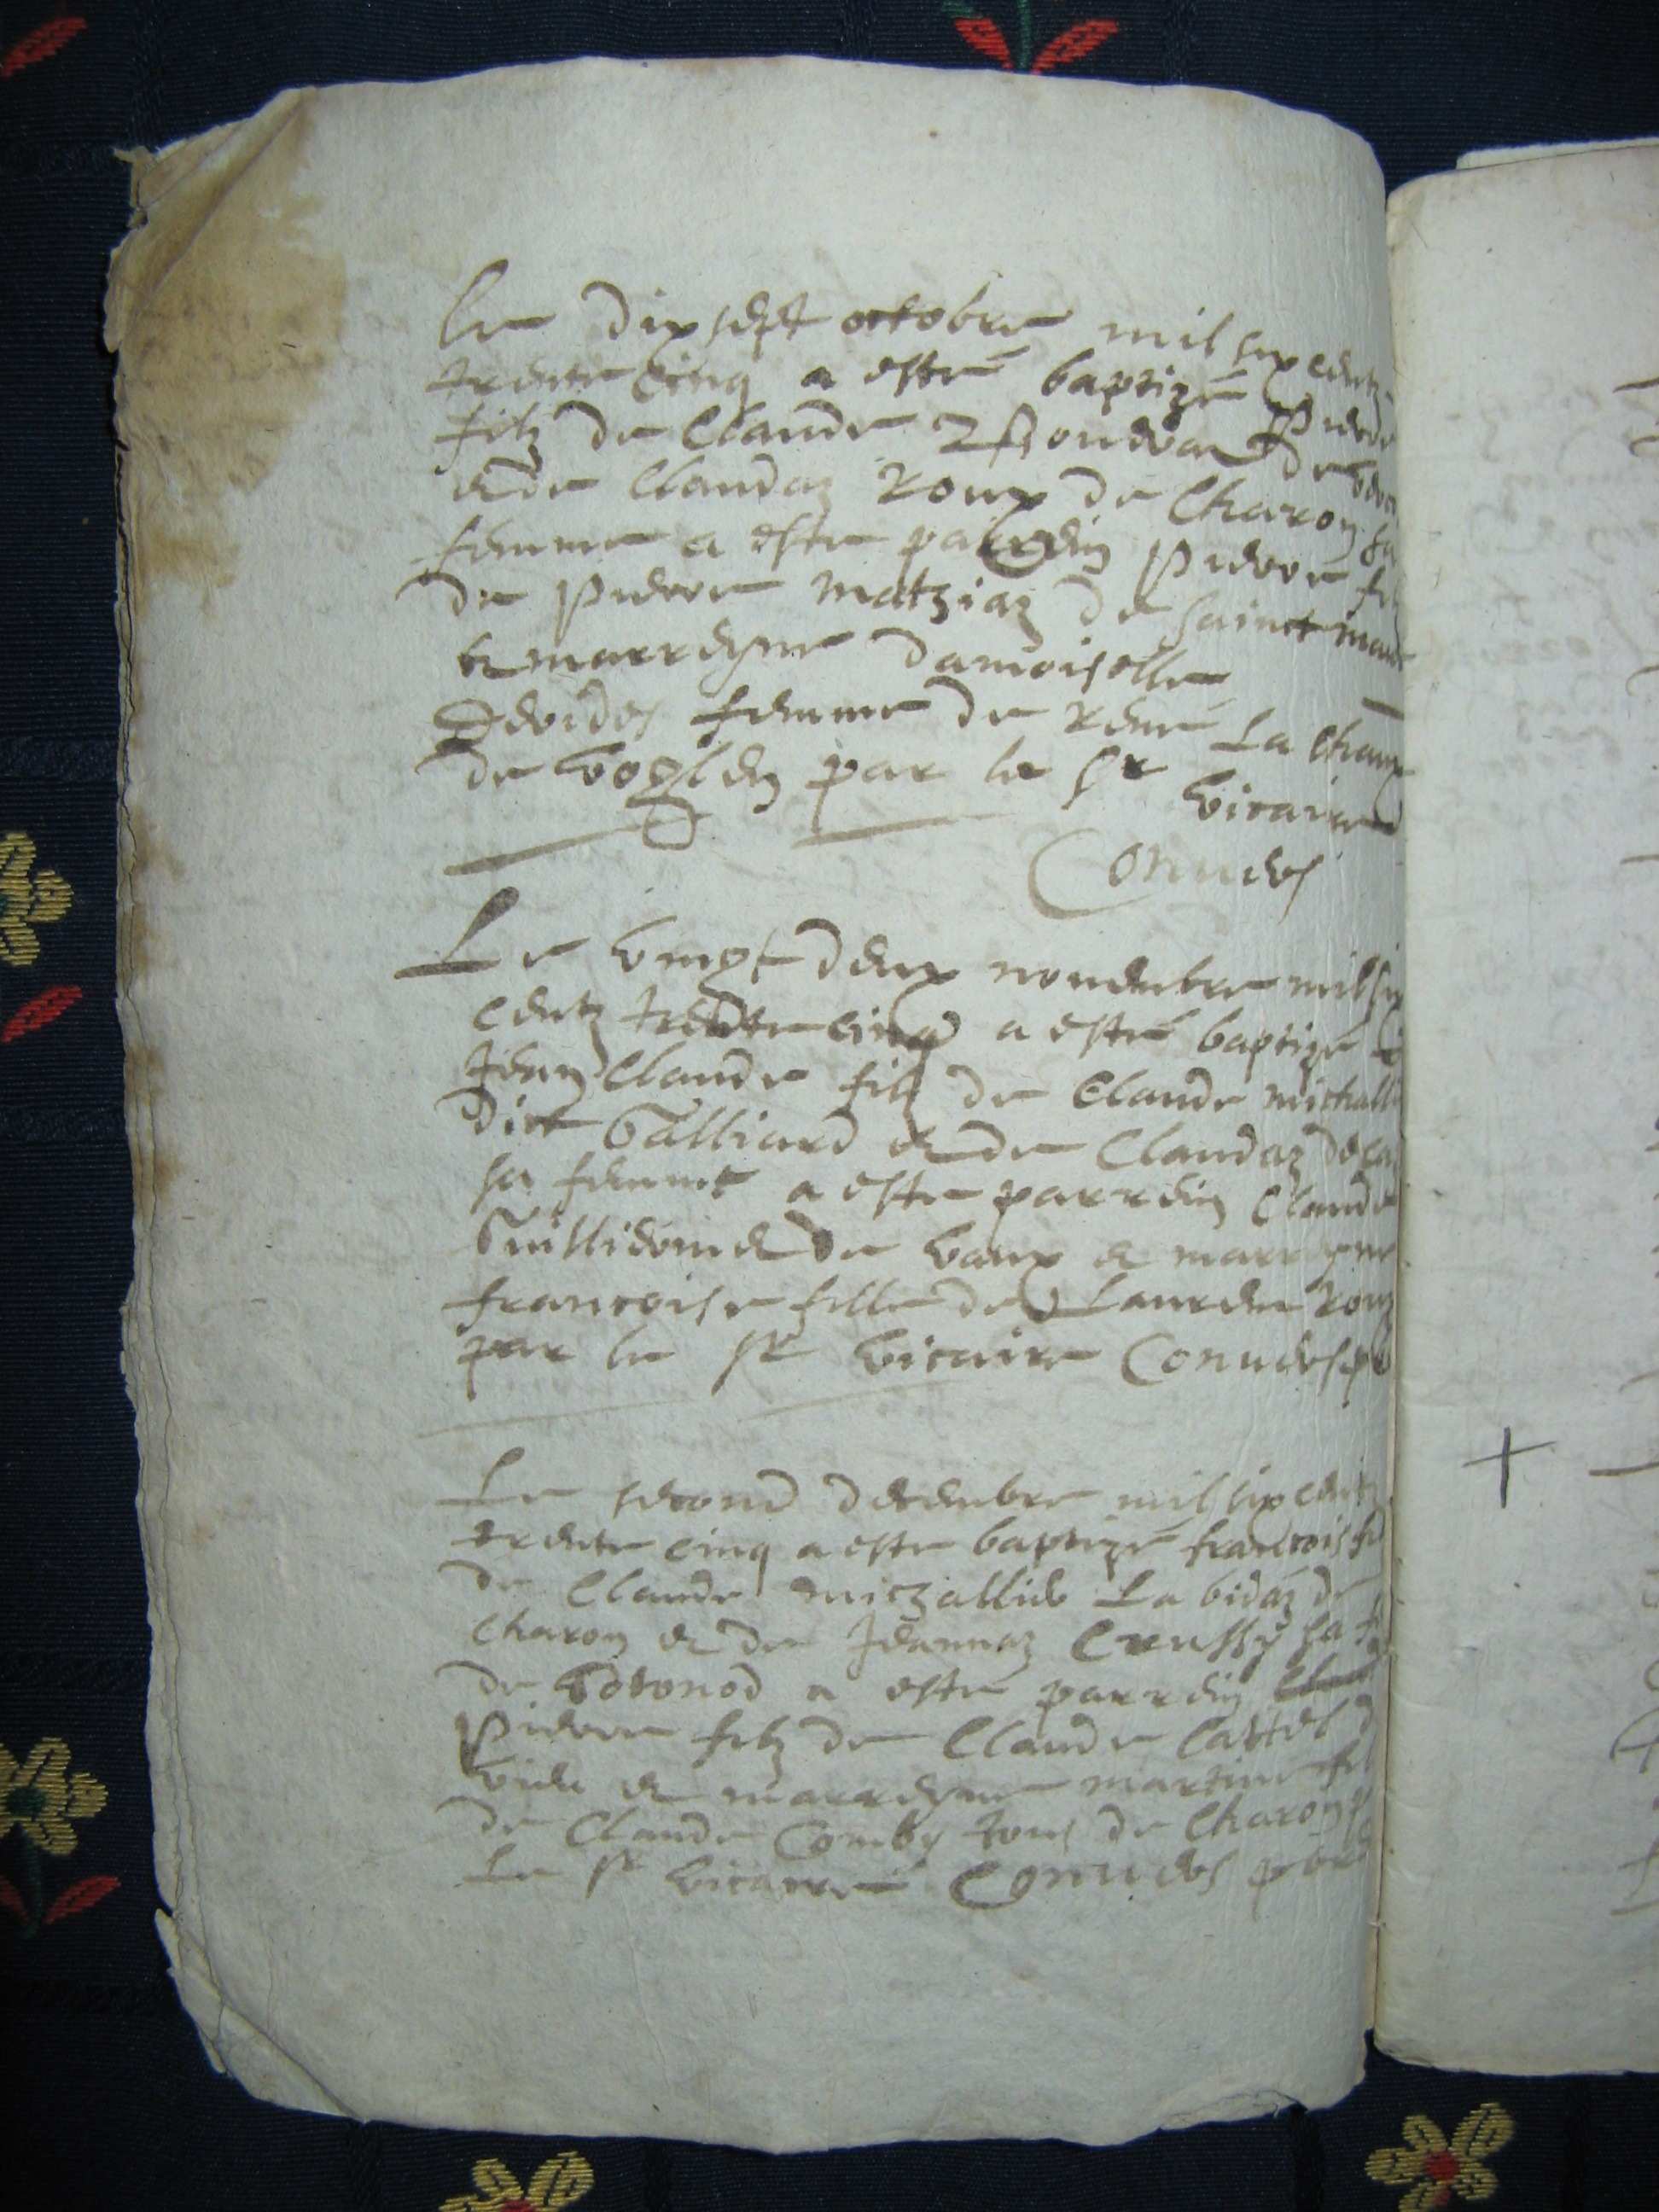 Le dixsept octobre mil six centz
trente cinq a esté baptizé Pierre
filz de Claude de
et de Claudaz Roux de Charon sa
femme a este parrein Pierre fi
de Pierre Matziaz de sainct Mau
et marreyne damoiselle
femme de René La Cham
de Voglen par le Sr Vicaire
Convers
Le vingt deux novembre mil six
centz trente cinq a esté baptizé
Jean Claude filz de Claude Michalli
dict Galliard et de Claudaz
sa femme a este parrein Claude
de Vaux et marreyne
francoise fille de Lauren Roux
par le Sr Vicaire Convers
Le second decembre mil six centz
trente cinq a este baptizé francois fil
de Claude Miczallier La bidaz de
Charon et de Jeannaz Crussy sa f
de a esté parrein
Pierre filz de Claude Cattel d
et marreyne Martine fil
de Claude Comby tous de Charon p
Le Sr Vicaire Convers